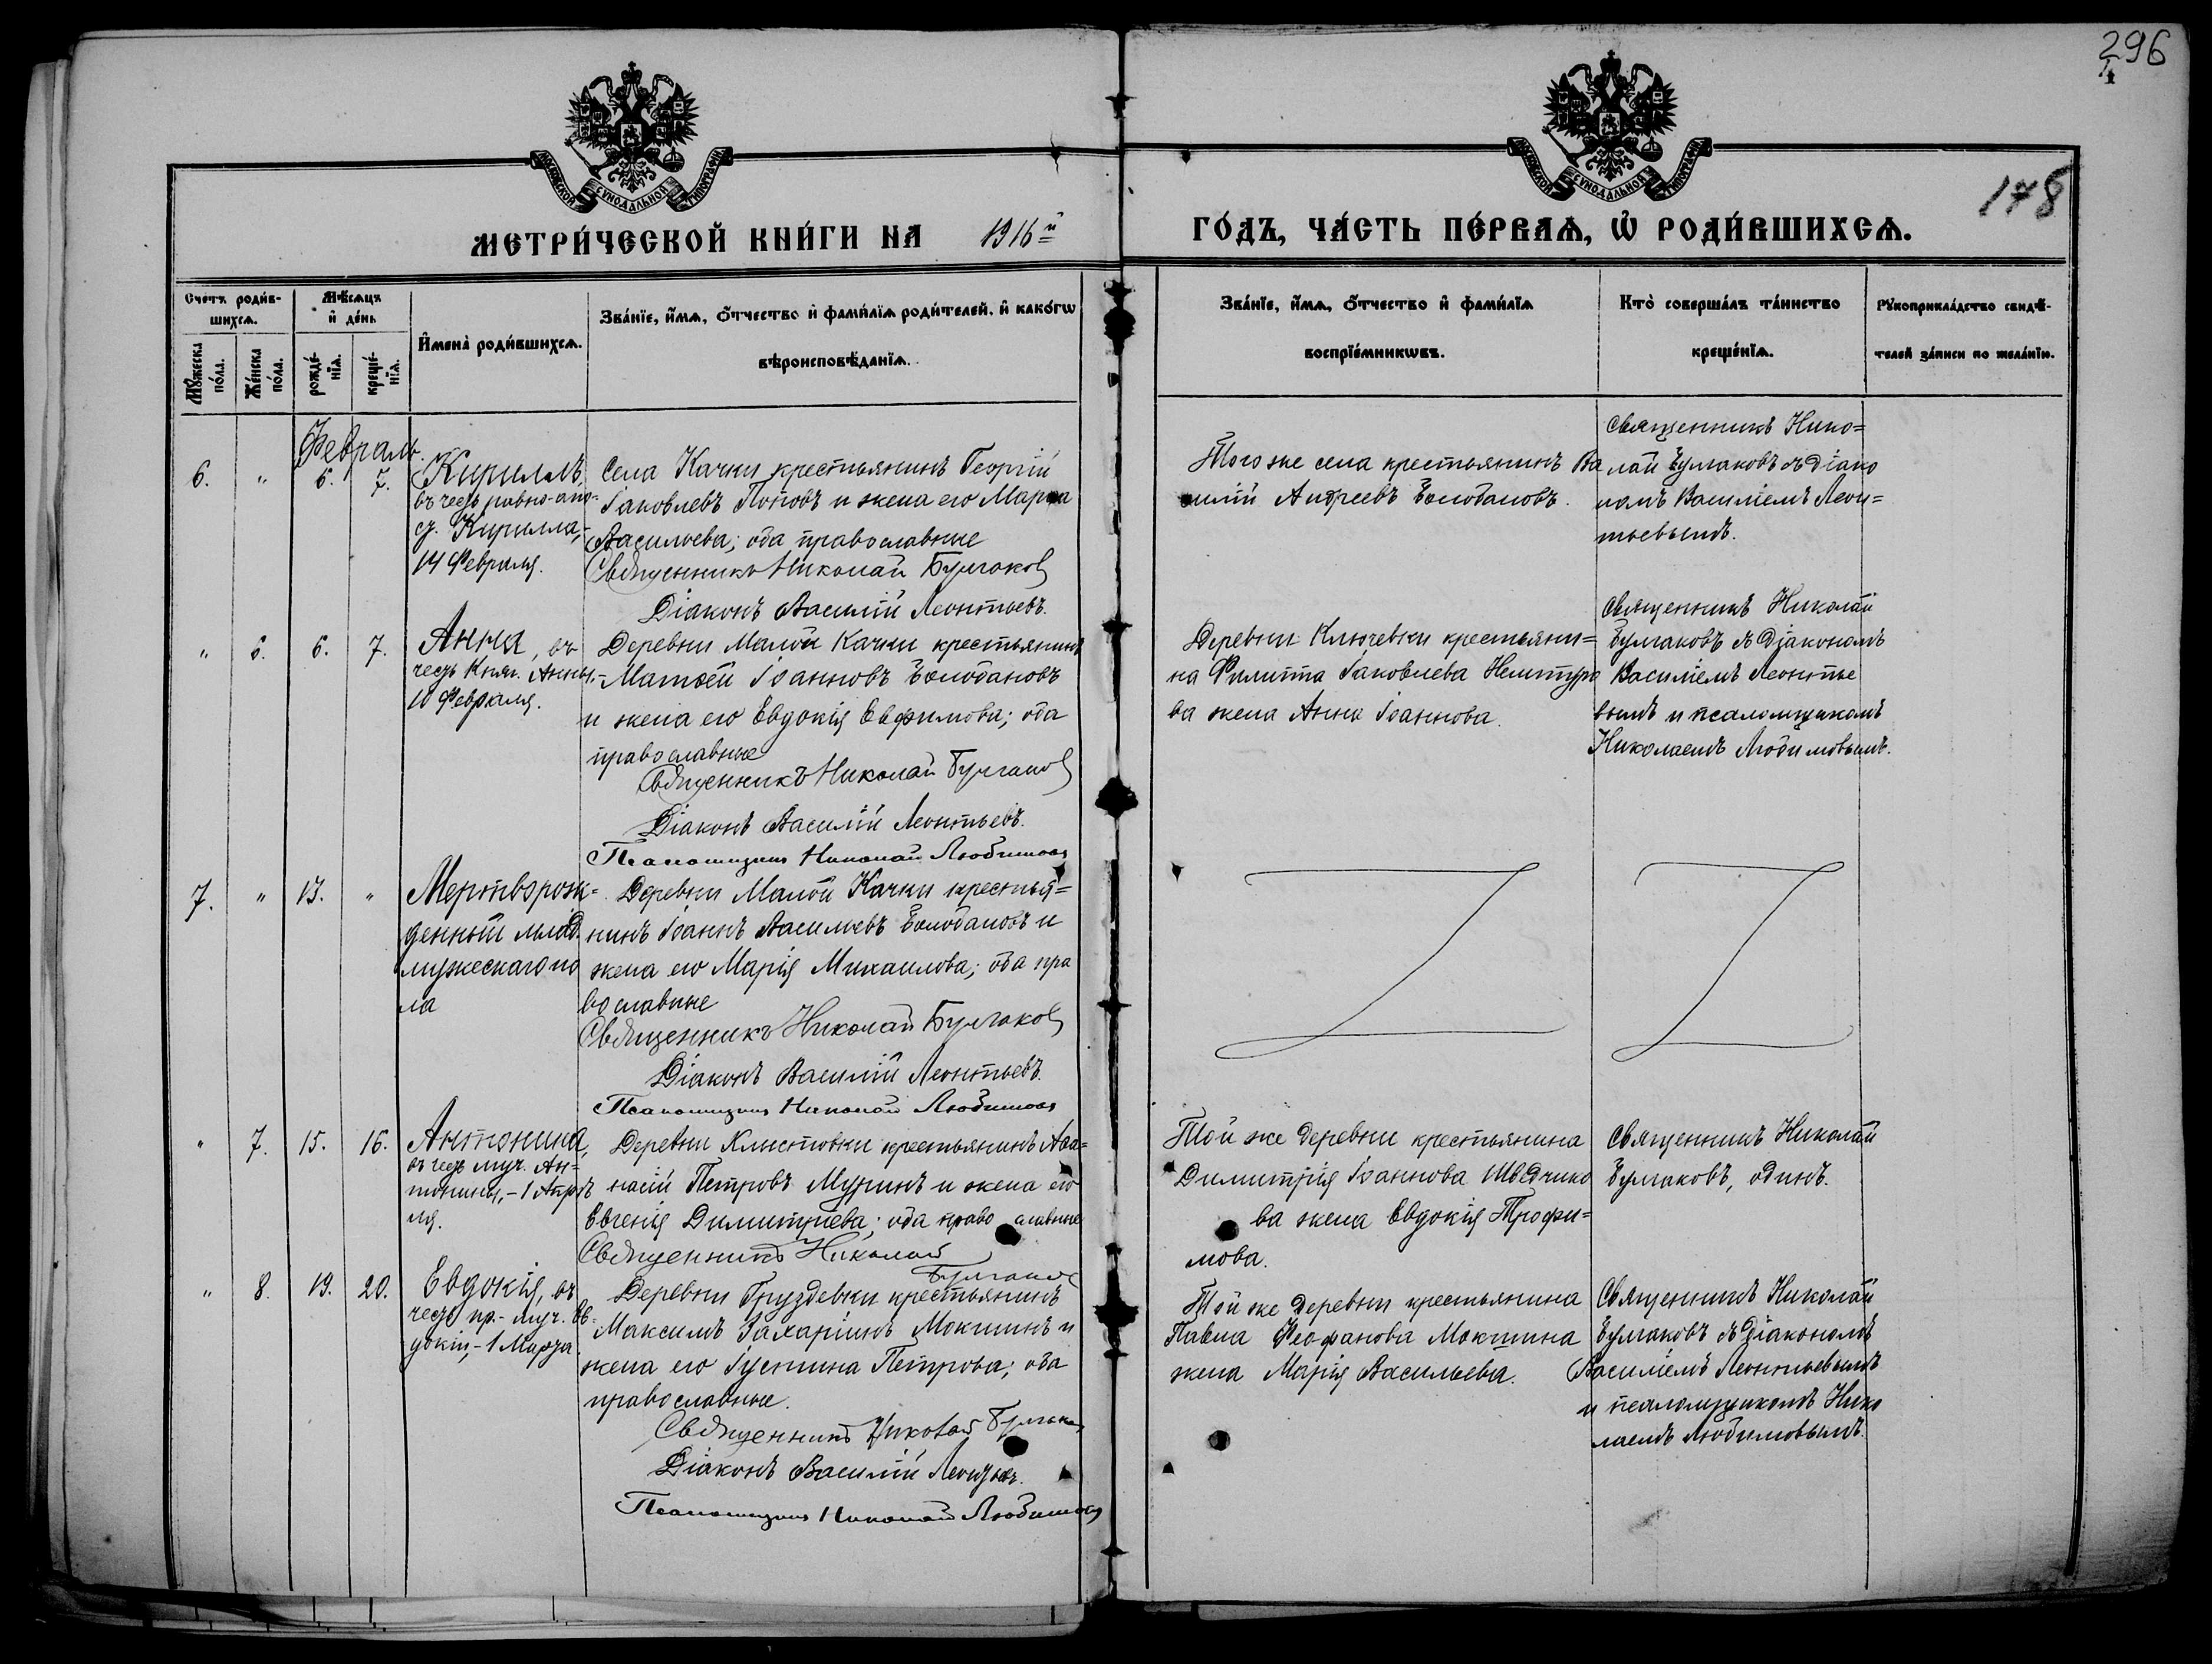 296
178
МОСКОВСКОЙ СѴНОДАЛЬНОЙ ТИПОГРАФІИ
МОСКОВСКОЙ СѴНОДАЛЬНОЙ ТИПОГРАФІИ
МЕТРИ́ЧЕСКОЙ КНИ́ГИ НА 1916й
ГО́ДЪ, ЧА́СТЬ ПЕ́РВАѦ, Ѡ҆ РОДИ́ВШИХСѦ.
Счетъ роди́в-
шихсѧ.
Мѣ́сѧцъ
и҆ де́нь
И҆мена̀ роди́вшихсѧ.
Зва́нїе, и҆́мѧ, ѻ҆́тчество и҆ фами́лїѧ роди́телей, и҆ како́гѡ
вѣроисповѣ́данїѧ.
Мꙋ́жеска
по́ла.
Же́нска
по́ла.
рожде́-
нїѧ.
креще́-
нїѧ.
Зва́нїе, и҆́мѧ, ѻ҆́тчество и҆ фами́лїѧ
воспрїе́мникѡвъ.
Кто̀ соверша́лъ та́инство
креще́нїѧ.
Рꙋкоприкла́дство свидѣ́-
телей за́писи по жела́нїю.
Февраль.
6. " 6. 7.
Кириллъ,
въ честь равно-апо=
ст. Кирилла,-
14 Февраля.
Села Качки крестьянинъ Георгій
Іаковлевъ Поповъ и жена его Марѳа
Васильева; оба православные
Священникъ Николай Булгаковъ
Діаконъ Василій Леонтьевъ.
Того же села крестьянинъ Ва
силій Андреевъ Болобановъ.
Священникъ Нико=
лай Булгаковъ съ діако
номъ Василіемъ Леон=
тьевымъ.
" 6. 6. 7.
Анна, въ
честь Княг. Анны,-
10 Февраля.
Деревни Малой Качки крестьянинъ
Матѳей Іоанновъ Болобановъ
и жена его Евдокія Евфимова; оба
православные
Священникъ Николай Булгаковъ
Діаконъ Василій Леонтьевъ.
Псаломщикъ Николай Любимовъ
Деревни Ключевки крестьяни=
на Филиппа Іаковлева
ва жена Анна Іоаннова.
Священникъ Николай
Булгаковъ съ діакономъ
Василіемъ Леонтье
вымъ и псаломщикомъ
Николаемъ Любимовымъ.
7. " 13. "
Мертворож=
денный млад.
мужескаго по
ла
Деревни Малой Качки крестья=
нинъ Іоаннъ Васильевъ Болобановъ и
жена его Марія Михаилова; оба пра
вославные
Священникъ Николай Булгаковъ
Діаконъ Василій Леонтьевъ.
Псаломщикъ Николай Любимовъ
" 7. 15. 16.
Антонина,
въ честь муч. Ан=
тонины,- 1 Апрѣ
ля.
Деревни Клистовки крестьянинъ Аѳа=
насій Петровъ Муринъ и жена его
Евгенія Димитріева; оба православные
Священникъ Николай
Булгаковъ
Той же деревни крестьянина
Димитрія Іоаннова Шведчико
ва жена Евдокія Трофи=
мова.
Священникъ Николай
Булгаковъ, одинъ.
" 8. 19. 20.
Евдокія, въ
честь пр.- муч. Ев-
докіи,- 1 Марта
Деревни Груздевки крестьянинъ
Максимъ Захаріинъ Мокшинъ и
жена его Іустина Петрова; оба
православные.
Священникъ Николай Булгаковъ
Діаконъ Василій Леонтьевъ.
Псаломщикъ Николай Любимовъ
Той же деревни крестьянина
Павла Феофанова Мокшина
жена Марія Васильева.
Священникъ Николай
Булгаковъ съ діакономъ
Василіемъ Леонтьевымъ
и псаломщикомъ Нико
лаемъ Любимовымъ.